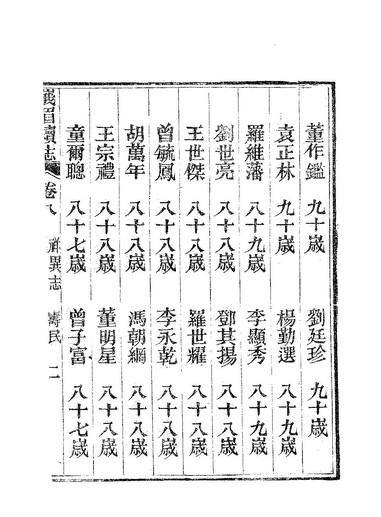 董作鑑 九十歲 劉廷珍 九十歲
袁正林 九十歲 楊勤選 八十九歲
羅維藩 八十九歲 李顯秀 八十九歲
劉世亮 八十八歲 鄧其揚 八十八歲
王世傑 八十八歲 羅世耀 八十八歲
曾毓鳳 八十八歲 李永乾 八十八歲
胡萬年 八十八歲 馮朝綱 八十八歲
王宗禮 八十八歲 董明星 八十八歲
童爾聰 八十七歲 曾子富 八十七歲
峨眉續志 卷八 祥異志 壽民 二